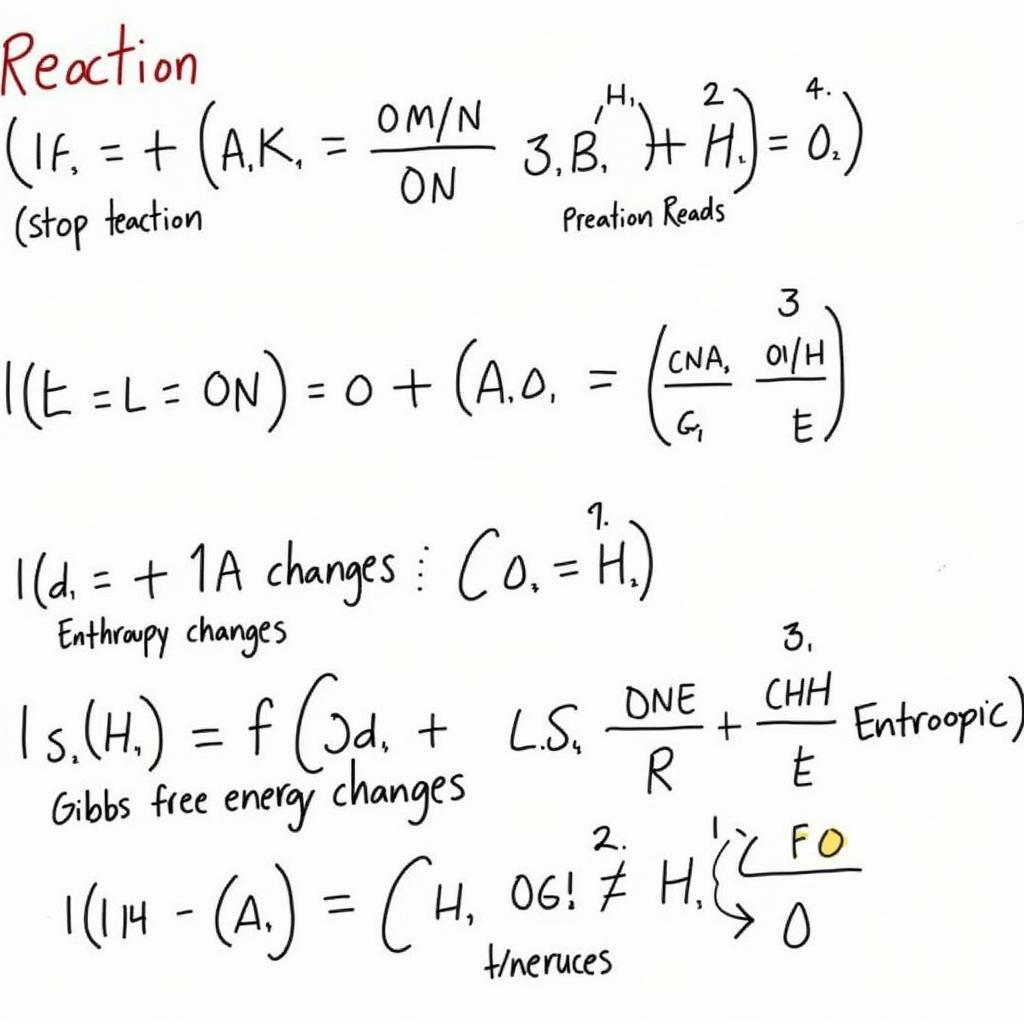 Reaction
(1F, = + (A.K, = OM/N / ON 3,B, H, ) + H, 2 ) = O₂ 4. )
(stop teaction
Preation Reads
|(E = L = ON) = 0 + (A.O, = (CNA, / G, 3 OI/H / E)
|(d, = + 1A changes ⋮ (O, = H, 1.)
Enthroupy changes
| s,(H,) = f (Jd, + L.S, ONE / R + 3, CHH / E Entroopic)
Gibbs free energy changes
|(1 14 - (A,) = (H, OG! 2. ≠ H, { FO / O
t/neruces